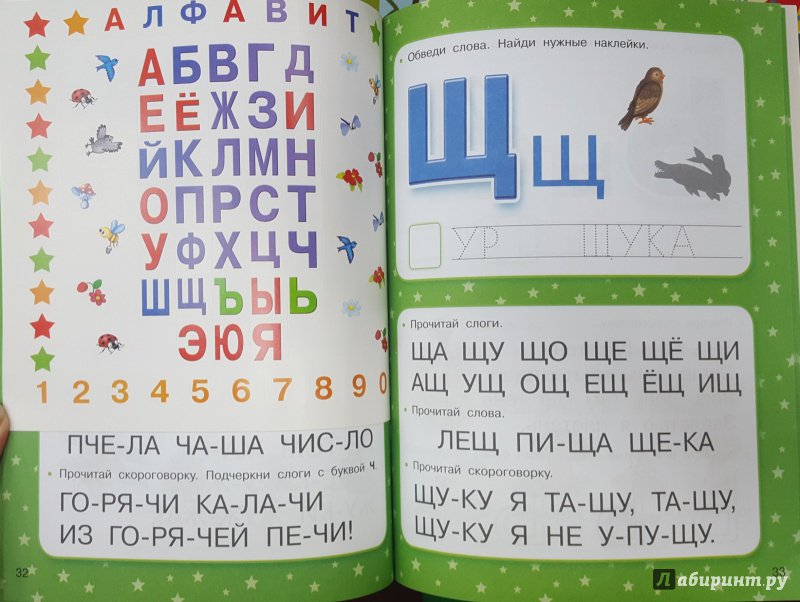 АЛФАВИТ
АБВГД
ЕЁЖЗИ
ЙКЛМН
ОПРСТ
УФХЦЧ
ШЩЪЫЬ
ЭЮЯ
1 2 3 4 5 6 7 8 9 0
ПЧЕ-ЛА ЧА-ША ЧИС-ЛО
• Прочитай скороговорку. Подчеркни слоги с буквой Ч.
ГО-РЯ-ЧИ КА-ЛА-ЧИ
ИЗ ГО-РЯ-ЧЕЙ ПЕ-ЧИ!
32
• Обведи слова. Найди нужные наклейки.
Щ щ
УР ЩУКА
• Прочитай слоги.
ЩА ЩУ ЩО ЩЕ ЩЁ ЩИ
АЩ УЩ ОЩ ЕЩ ЁЩ ИЩ
• Прочитай слова.
ЛЕЩ ПИ-ЩА ЩЕ-КА
• Прочитай скороговорку.
ЩУ-КУ Я ТА-ЩУ, ТА-ЩУ,
ЩУ-КУ Я НЕ У-ПУ-ЩУ.
33
Лабиринт.ру